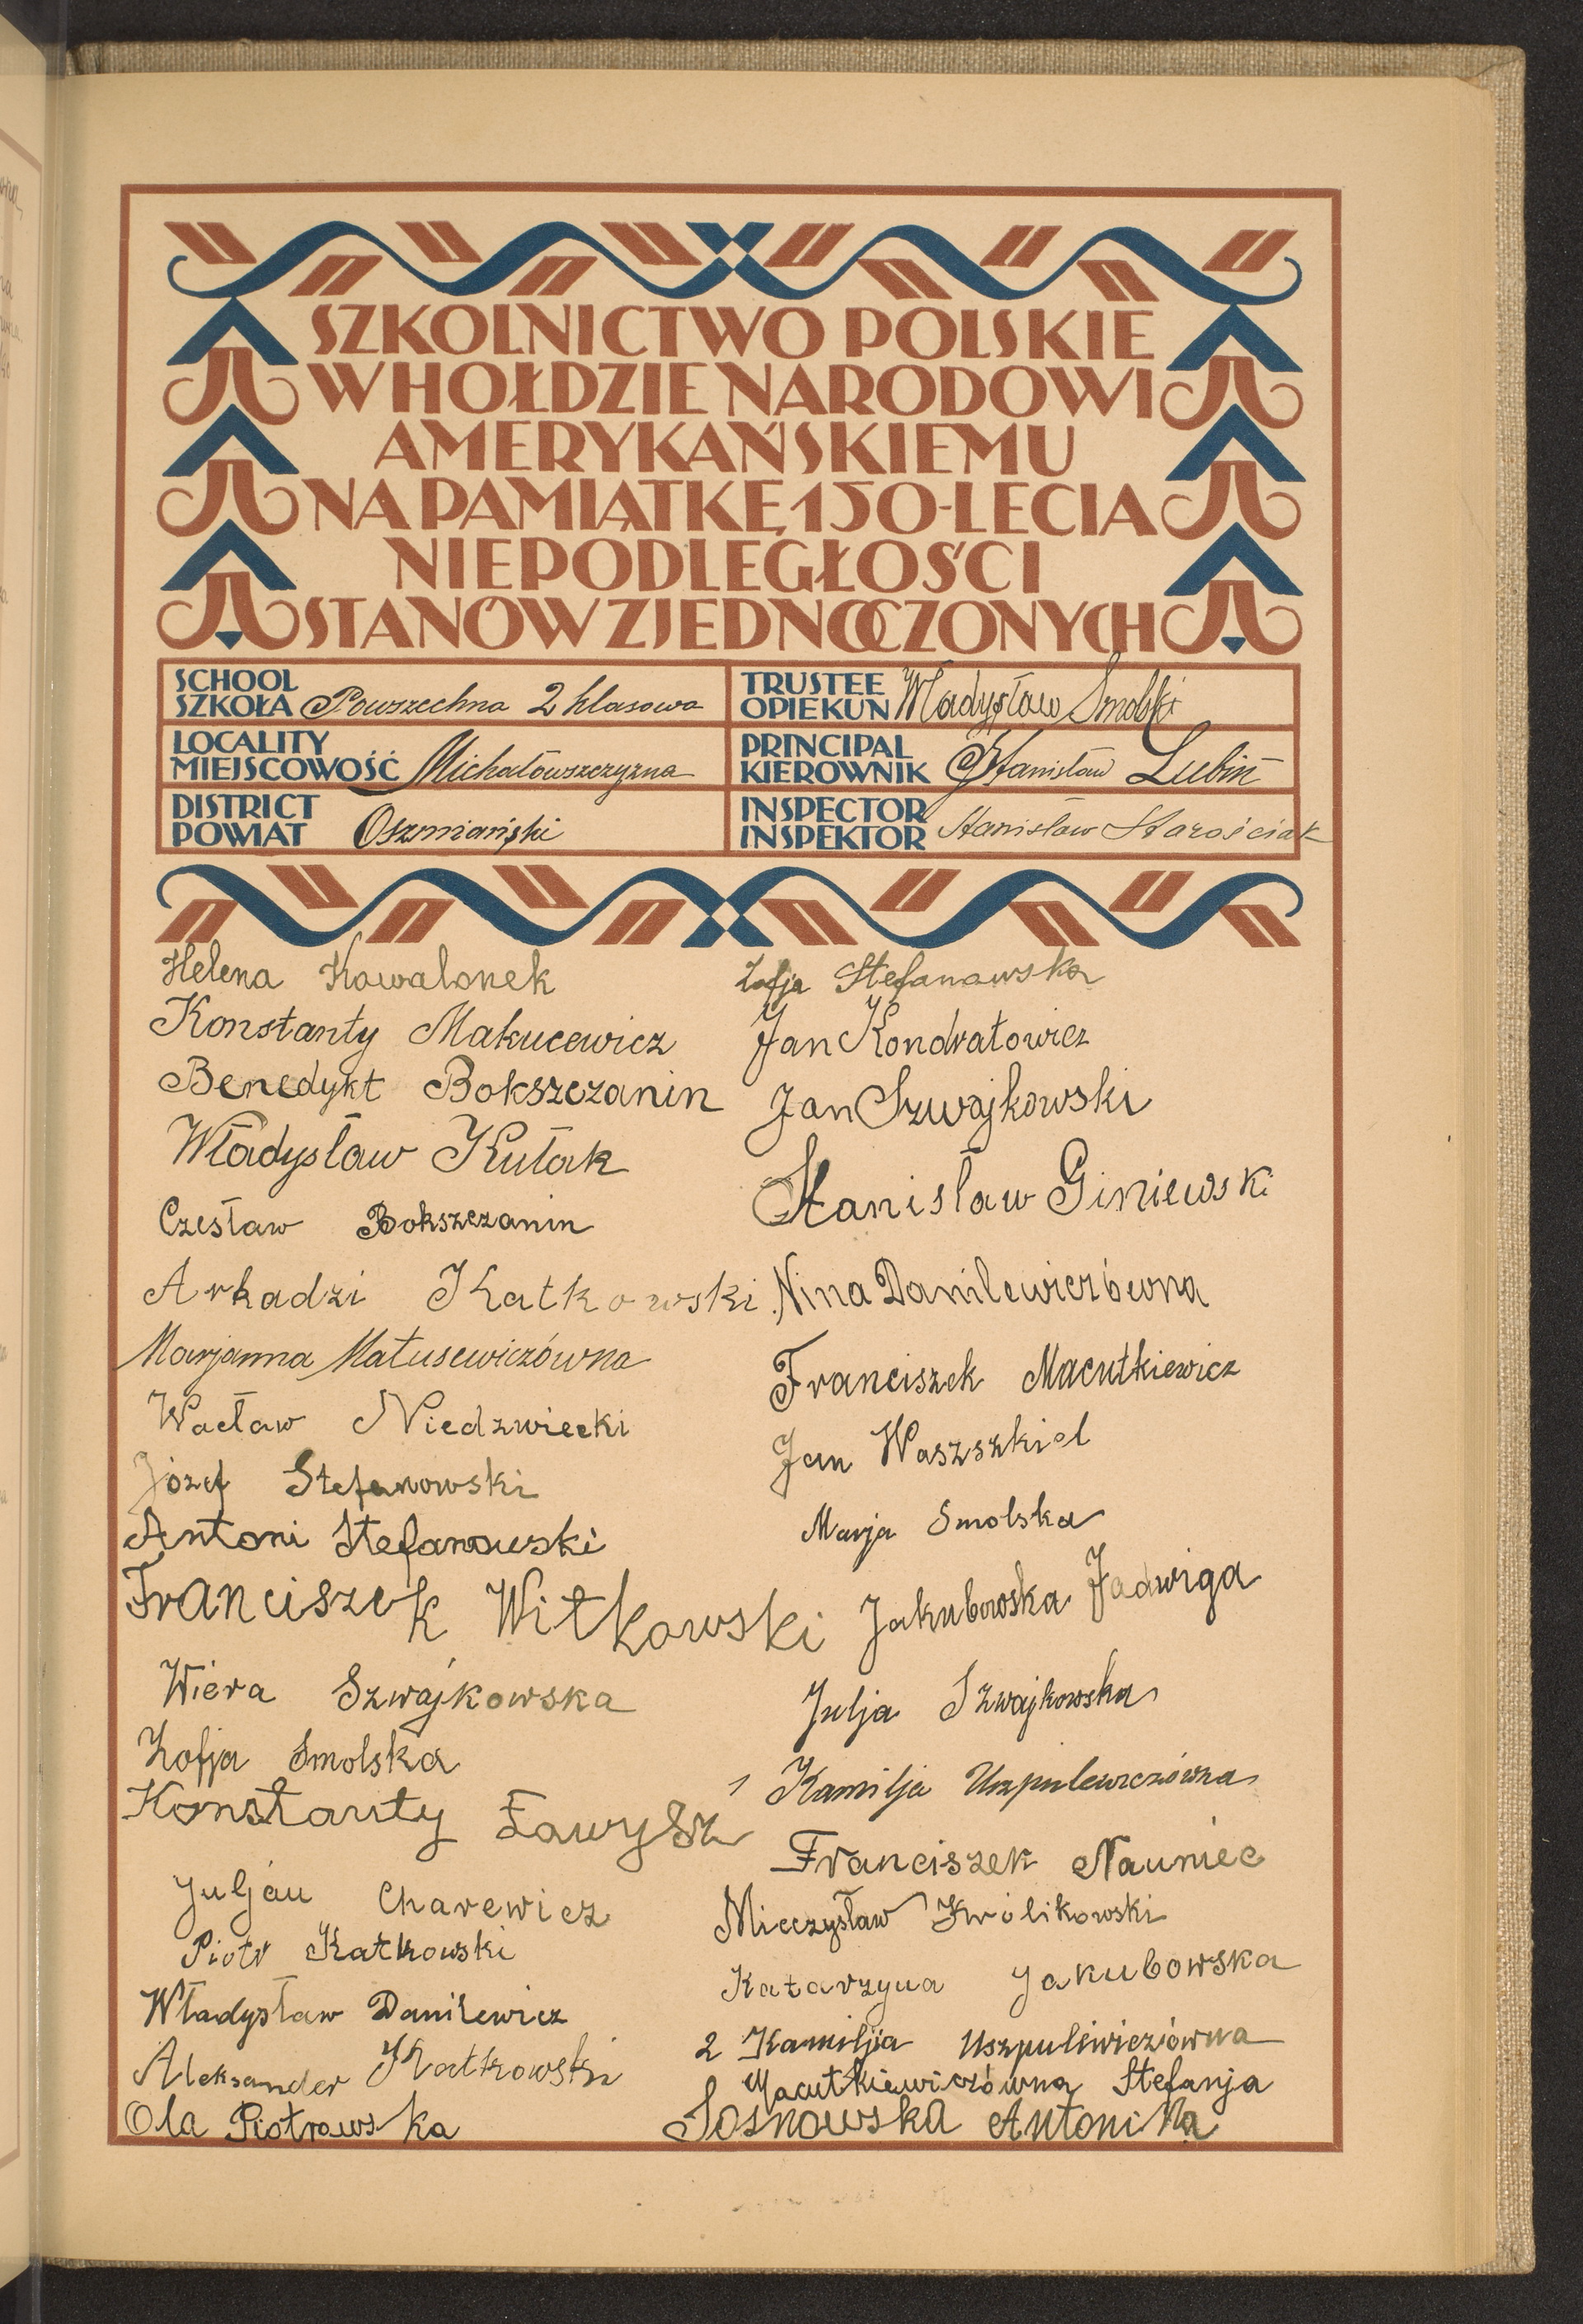 SZKOLNICTWO POLSKIE
W HOŁDZIE NARODOWI
AMERYKAŃSKIEMU
NA PAMIĄTKĘ 150-LECIA
NIEPODLEGŁOŚCI
STANÓW ZJEDNOCZONYCH
SCHOOL
SZKOŁA Powszechna 2 klasowa
TRUSTEE
OPIEKUN Władysław Smolski
LOCALITY
MIEJSCOWOŚĆ Michałowszczyzna
PRINCIPAL
KIEROWNIK Stanisław Lubin
DISTRICT
POWIAT Oszmiański
INSPECTOR
INSPEKTOR Stanisław Starościak
Helena Kowalonek
Konstanty Makucewicz
Benedykt Bokszczanin
Władysław Kułak
Czesław Bokszczanin
Arkadzi Katkowski
Marjanna Matusewiczówna
Wacław Niedzwiecki
Józef Stefanowski
Antoni Stefanowski
Franciszek Witkowski
Wiera Szwajkowska
Zofja Smolska
Konstanty Ławysz
Juljan Charewicz
Piotr Katkowski
Władysław Danilewicz
Aleksander Katkowski
Ola Piotrowska
Zofja Stefanawska
Jan Kondratowicz
Jan Szwajkowski
Stanisław Giniewski
Nina Danilewiczówna
Franciszek Macutkiewicz
Jan Waszszkiel
Marja Smolska
Jakubowska Jadwiga
Julja Szwajkowska
1 Kamilja Uszpulewiczówna
Franciszek Nauniec
Mieczysław Królikowski
Katarzyna Jakubowska
2 Kamilja Uszpulewiczówna
Macutkiewiczówna Stefanja
Sosnowska Antonina